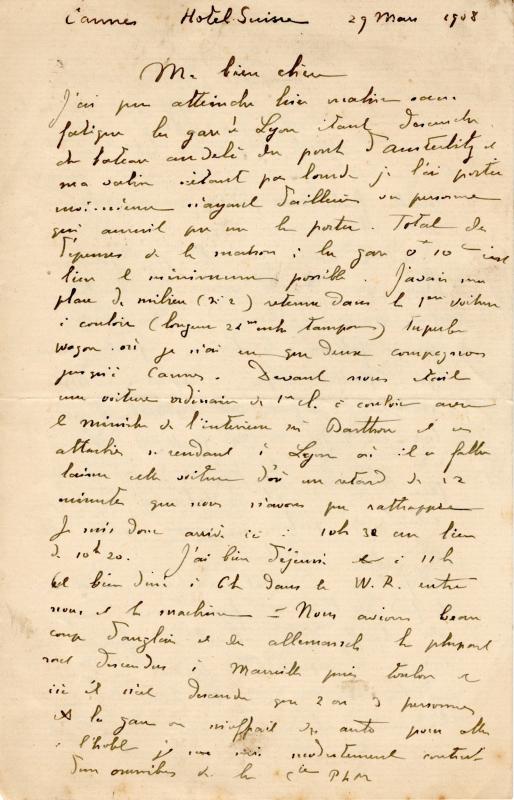 Cannes Hotel Suisse 29 Mars 1908
Ma bien chère
J'ai pu atteindre hier matin sans
fatigue la gare de Lyon étant descendu
du bateau au delà du pont d'Austerlitz et
ma valise n'étant pas lourde je l'ai portée
moi-même n'ayant d'ailleurs vu personne
qui aurait pu me la porter. Total des
dépenses de la maison à la gare 0f 10c c'est
bien le minimum possible. J'avais ma
place de milieu (No 2) retenue dans la 1ère voiture
à couloir (longueur 21m entre tampons) superbe
wagon où je n'ai eu que deux compagnons
jusqu'à Cannes. Devant nous était
une voiture ordinaire de 1re cl. à couloir avec
le ministre de l'intérieur Barthou et ses
attachés se rendant à Lyon où il a fallu
laisser cette voiture d'où un retard de 12
minutes que nous n'avons pu rattraper
Je suis donc arrivé ici à 10h 32 au lieu
de 10h 20. J'ai bien déjeuné à 11h
et bien diné à 6h dans le W. R. entre
nous et la machine = Nous avions beau
coup d'anglais et des allemands la plupart
sont descendus à Marseille puis Toulon et
ici il n'est descendu que 2 ou 3 personnes
A la gare on m'offrait des auto pour aller
à l'hotel je me suis modestement contenté
d'un omnibus de la Cie PLM